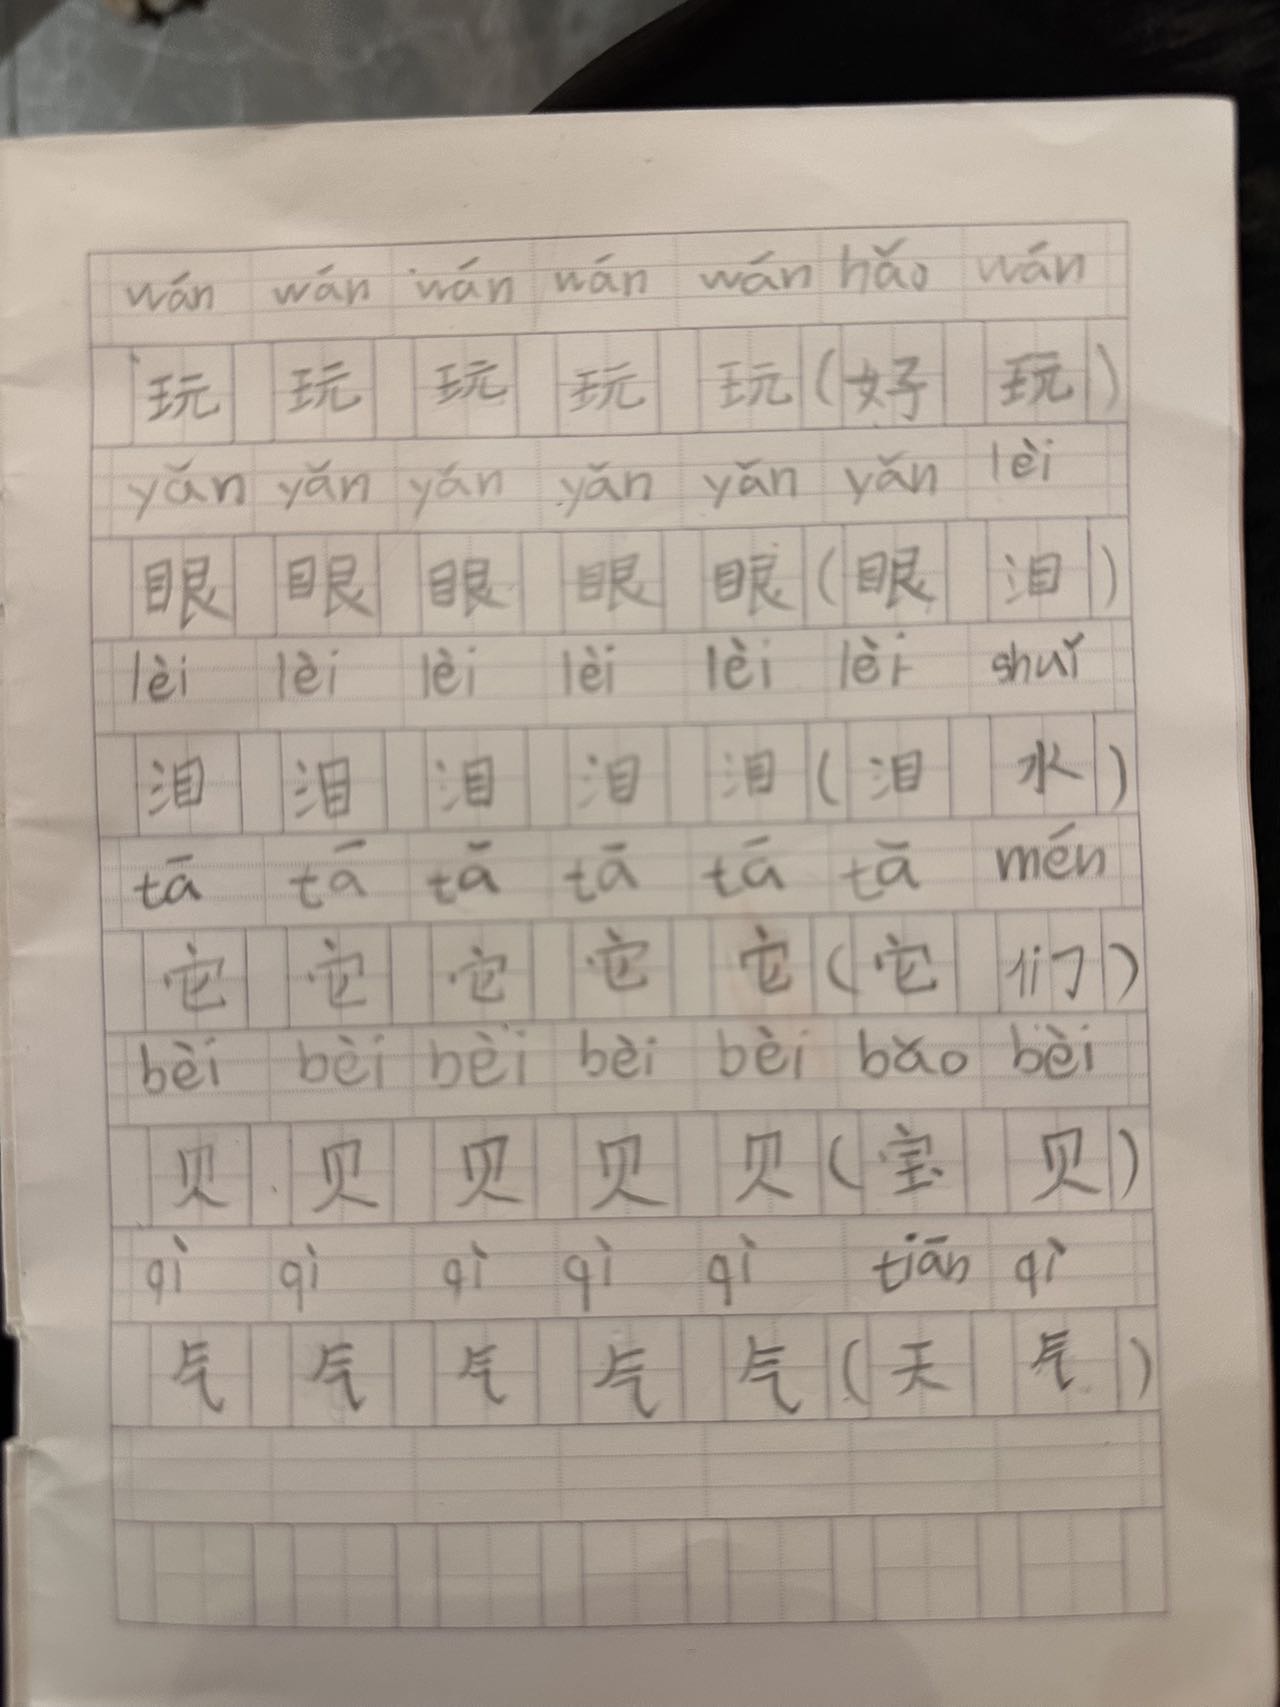 wán wán wán wán wán hǎo wán
玩 玩 玩 玩 玩 (好 玩)
yǎn yǎn yǎn yǎn yǎn yǎn lèi
眼 眼 眼 眼 眼 (眼 泪)
lèi lèi lèi lèi lèi lèi shuǐ
泪 泪 泪 泪 泪 (泪 水)
tā tā tā tā tā tā mén
它 它 它 它 它 (它 们)
bèi bèi bèi bèi bèi bǎo bèi
贝 贝 贝 贝 贝 (宝 贝)
qì qì qì qì qì tiān qì
气 气 气 气 气 (天 气)